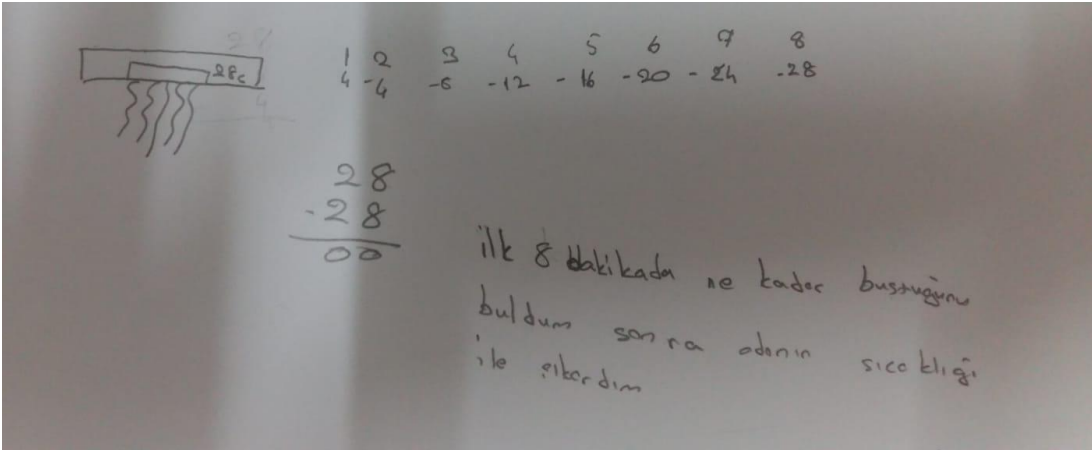 28c
1 2 3 4 5 6 7 8
4 -4 -8 -12 - 16 -20 - 24 -28
28
-28
00
ilk 8 dakikada ne kadar bustuğunu
buldum sonra odanın sıcaklığı
ile çıkardım